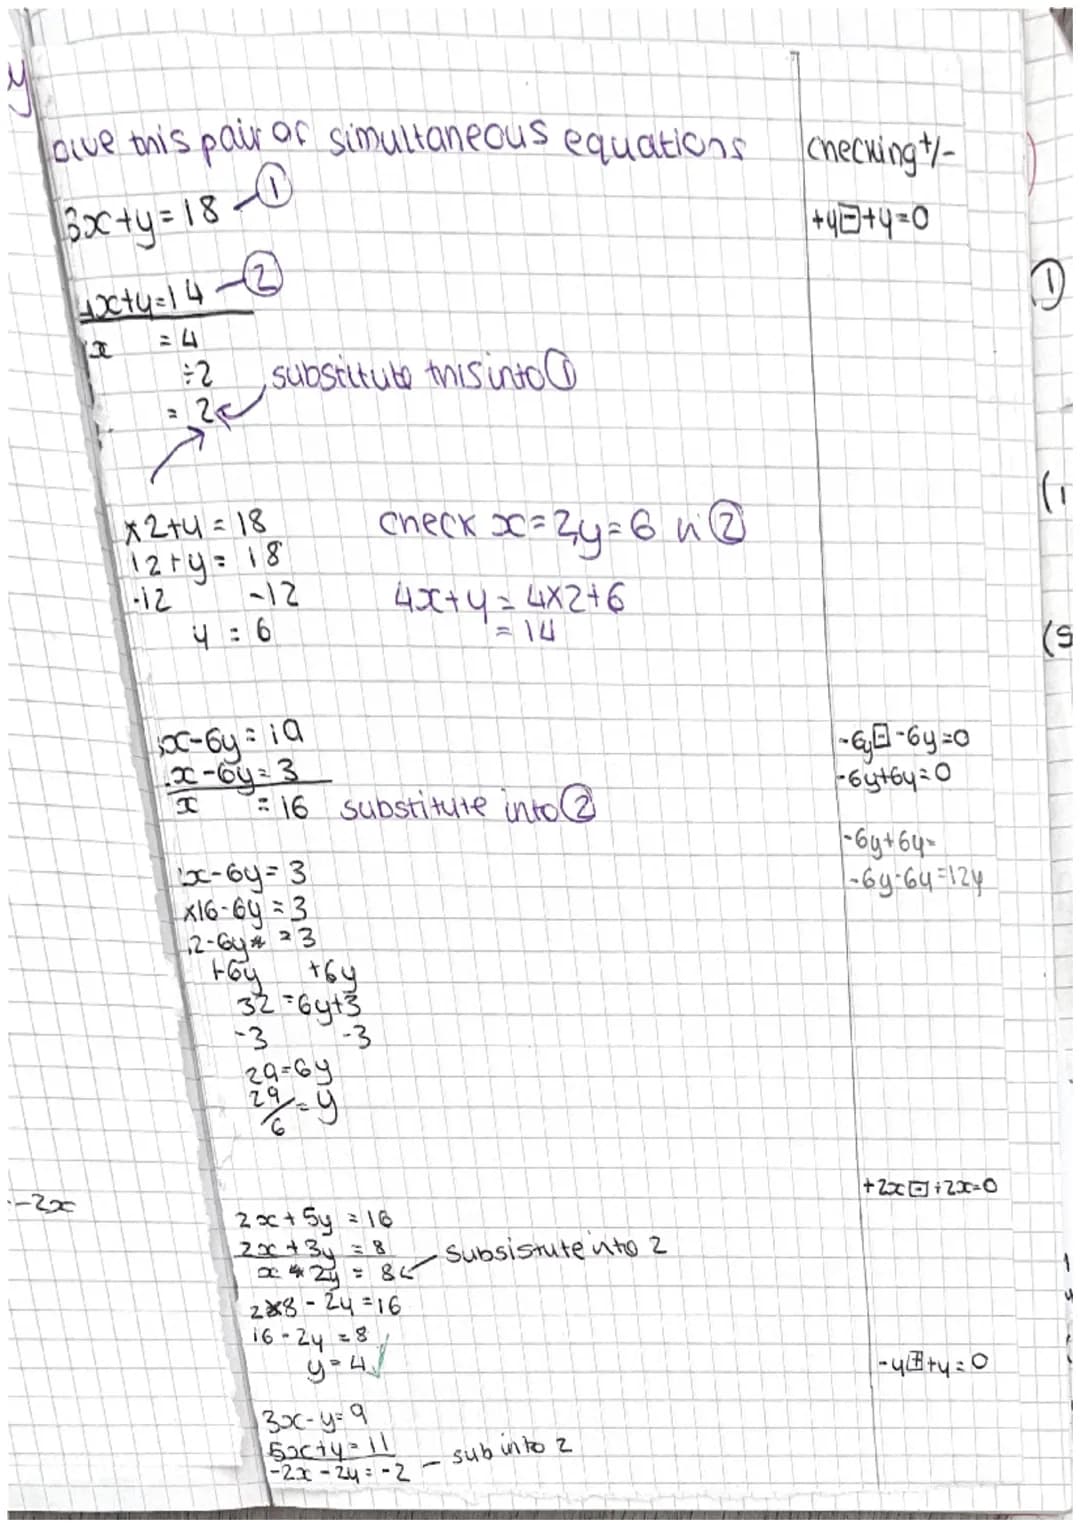 olve this pair of simultaneous equations
checking +/-
3x+y=18 - ①
+y⊟+y=0
4x+y=14 - ②
x = 4
÷2
= 2
substitute this into ①
x2+y = 18
check x=2,y=6 in ②
12+y= 18
-12 -12
4x+y = 4x2+6
y = 6
= 14
x-6y= 19
-6y⊟-6y=0
x-6y=3
-6y+6y=0
x = 16 substitute into ②
-6y+6y=
x-6y= 3
-6y-6y=12y
x16-6y=3
2-6y = 3
+6y +6y
32 =6y+3
-3 -3
29=6y
29/6 = y
-2x
+2x⊟+2x=0
2x+5y =16
2x+3y = 8
substitute into 2
x 2y = 8
2x8-2y=16
16-2y =8
y=4 ✓
-y⊞+y=0
3x-y=9
5x+y=11
-2x-2y=-2 - sub into 2